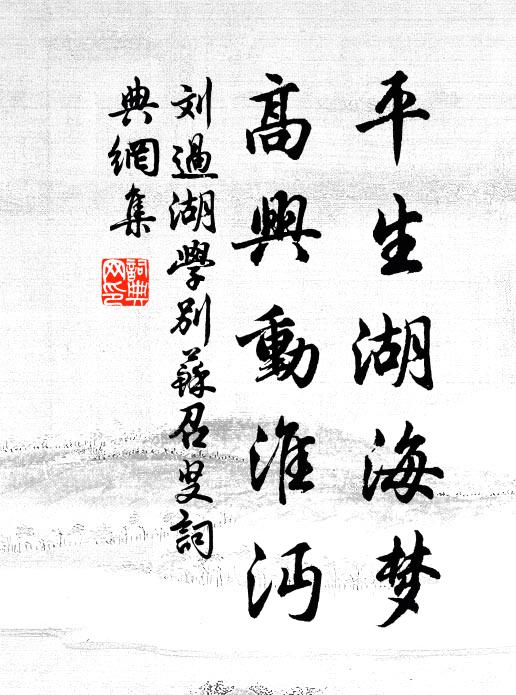 平生湖海梦
高興動淮沔
刘過湖學别蘇召叟詞
典網集
詞典
网印